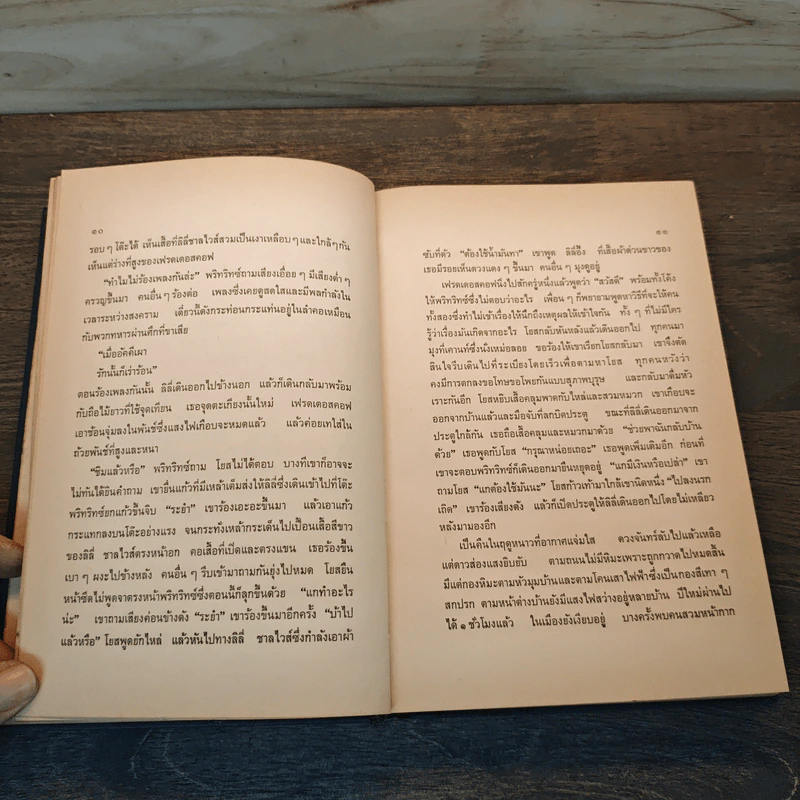 ๑๐
รอบ ๆ โต๊ะได้ เห็นเสื้อที่ลิลี่ชาลไวส์สวมเป็นเงาเหลือบ ๆ และใกล้ ๆ กัน
เห็นแต่ร่างที่สูงของเฟรดเดอสคอฟ
“ทำไมไม่ร้องเพลงกันล่ะ” พริทริทซ์ถามเสียงเอื่อย ๆ มีเสียงต่ำ ๆ
ครวญขึ้นมา คนอื่น ๆ ร้องต่อ เพลงซึ่งเคยดูสดใสและมีพลกำลังใน
เวลาระหว่างสงคราม เดี๋ยวนี้ดังกระท่อนกระแท่นอยู่ในลำคอเหมือน
กับพวกทหารผ่านศึกที่ขาเสีย
“เมื่ออัคคีเผา
รักนั้นก็เร่าร้อน”
ตอนร้องเพลงกันนั้น ลิลี่เดินออกไปข้างนอก แล้วก็เดินกลับมาพร้อม
กับถือไม้ยาวที่ใช้จุดเทียน เธอจุดตะเกียงนั้นใหม่ เฟรดเดอสคอฟ
เอาช้อนจุ่มลงในพันช์ซึ่งแสงไฟเกือบจะหมดแล้ว แล้วค่อยเทใส่ใน
ถ้วยพันช์ที่สูงและหนา
“ซึมแล้วหรือ” พริทริทซ์ถาม โยสไม่ได้ตอบ บางทีเขาก็อาจจะ
ไม่ทันได้ยินคำถาม เขายื่นแก้วที่มีเหล้าเต็มส่งให้ลิลี่ซึ่งเดินเข้าไปที่โต๊ะ
พริทริทซ์ยกแก้วขึ้นจิบ “ระยำ” เขาร้องเอะอะขึ้นมา แล้วเอาแก้ว
กระแทกลงบนโต๊ะอย่างแรง จนกระทั่งเหล้ากระเด็นไปเปื้อนเสื้อสีขาว
ของลิลี่ ชาลไวส์ตรงหน้าอก คอเสื้อที่เปิดและตรงแขน เธอร้องขึ้น
เบา ๆ ผงะไปข้างหลัง คนอื่น ๆ รีบเข้ามาถามกันยุ่งไปหมด โยสยืน
หน้าซีดไม่พูดจาตรงหน้าพริทริทซ์ซึ่งตอนนี้ก็ลุกขึ้นด้วย “แกทำอะไร
น่ะ” เขาถามเสียงค่อนข้างดัง “ระยำ” เขาร้องขึ้นมาอีกครั้ง “บ้าไป
แล้วหรือ” โยสพูดยักไหล่ แล้วหันไปทางลิลี่ ชาลไวส์ซึ่งกำลังเอาผ้า
๑๑
ซับที่ตัว “ต้องใช้น้ำมันทา” เขาพูด ลิลี่อึ้ง ที่เสื้อผ้าต่วนขาวของ
เธอมีรอยเห็นดวงแดง ๆ ขึ้นมา คนอื่น ๆ มุงดูอยู่
เฟรดเดอสคอฟนิ่งไปสักครู่หนึ่งแล้วพูดว่า “สวัสดี” พร้อมทั้งโค้ง
ให้พริทริทซ์ซึ่งไม่ตอบว่าอะไร เพื่อน ๆ ก็พยายามพูดหาวิธีที่จะให้คน
ทั้งสองซึ่งทำไม่เข้าเรื่องให้นึกถึงเหตุผลให้เข้าใจกัน ทั้ง ๆ ที่ไม่มีใคร
รู้ว่าเรื่องมันเกิดจากอะไร โยสกลับหันหลังแล้วเดินออกไป ทุกคนมา
มุงที่เคานท์ซึ่งนั่งเหม่อลอย ขอร้องให้เขาเรียกโยสกลับมา เขาจึงตัด
สินใจรีบเดินไปที่ระเบียงโดยเร็วเพื่อตามหาโยส ทุกคนหวังว่า
คงมีการตกลงขอโทษขอโพยกันแบบสุภาพบุรุษ และกลับมาดื่มหัว
เราะกันอีก โยสหยิบเสื้อคลุมพาดกับไหล่และสวมหมวก เขาเกือบจะ
ออกจากบ้านแล้วและมือจับที่ลกบิดประตู ขณะที่ลิลี่เดินออกมาจาก
ประตูใกล้กัน เธอถือเสื้อคลุมและหมวกมาด้วย “ช่วยพาฉันกลับบ้าน
ด้วย” เธอพูดกับโยส “กรุณาหน่อยเถอะ” เธอพูดเพิ่มเติมอีก ก่อนที่
เขาจะตอบพริทริทซ์ก็เดินออกมายืนหยุดอยู่ “แกมีเงินหรือเปล่า” เขา
ถามโยส “แกต้องใช้มันนะ” โยสก้าวเท้ามาใกล้เขานิดหนึ่ง “ไปลงนรก
เถิด” เขาร้องเสียงดัง แล้วก็เปิดประตูให้ลิลี่เดินออกไปโดยไม่เหลียว
หลังมามองอีก
เป็นคืนในฤดูหนาวที่อากาศแจ่มใส ดวงจันทร์ลับไปแล้วเหลือ
แต่ดาวส่องแสงยิบยับ ตามถนนไม่มีหิมะเพราะถูกกวาดไปหมดสิ้น
มีแต่กองหิมะตามหัวมุมบ้านและตามโคนเสาไฟฟ้าซึ่งเป็นกองสีเทา ๆ
สกปรก ตามหน้าต่างบ้านยังมีแสงไฟสว่างอยู่หลายบ้าน ปีใหม่ผ่านไป
ได้ ๑ ชั่วโมงแล้ว ในเมืองยังเงียบอยู่ บางครั้งพบคนสวมหน้ากาก